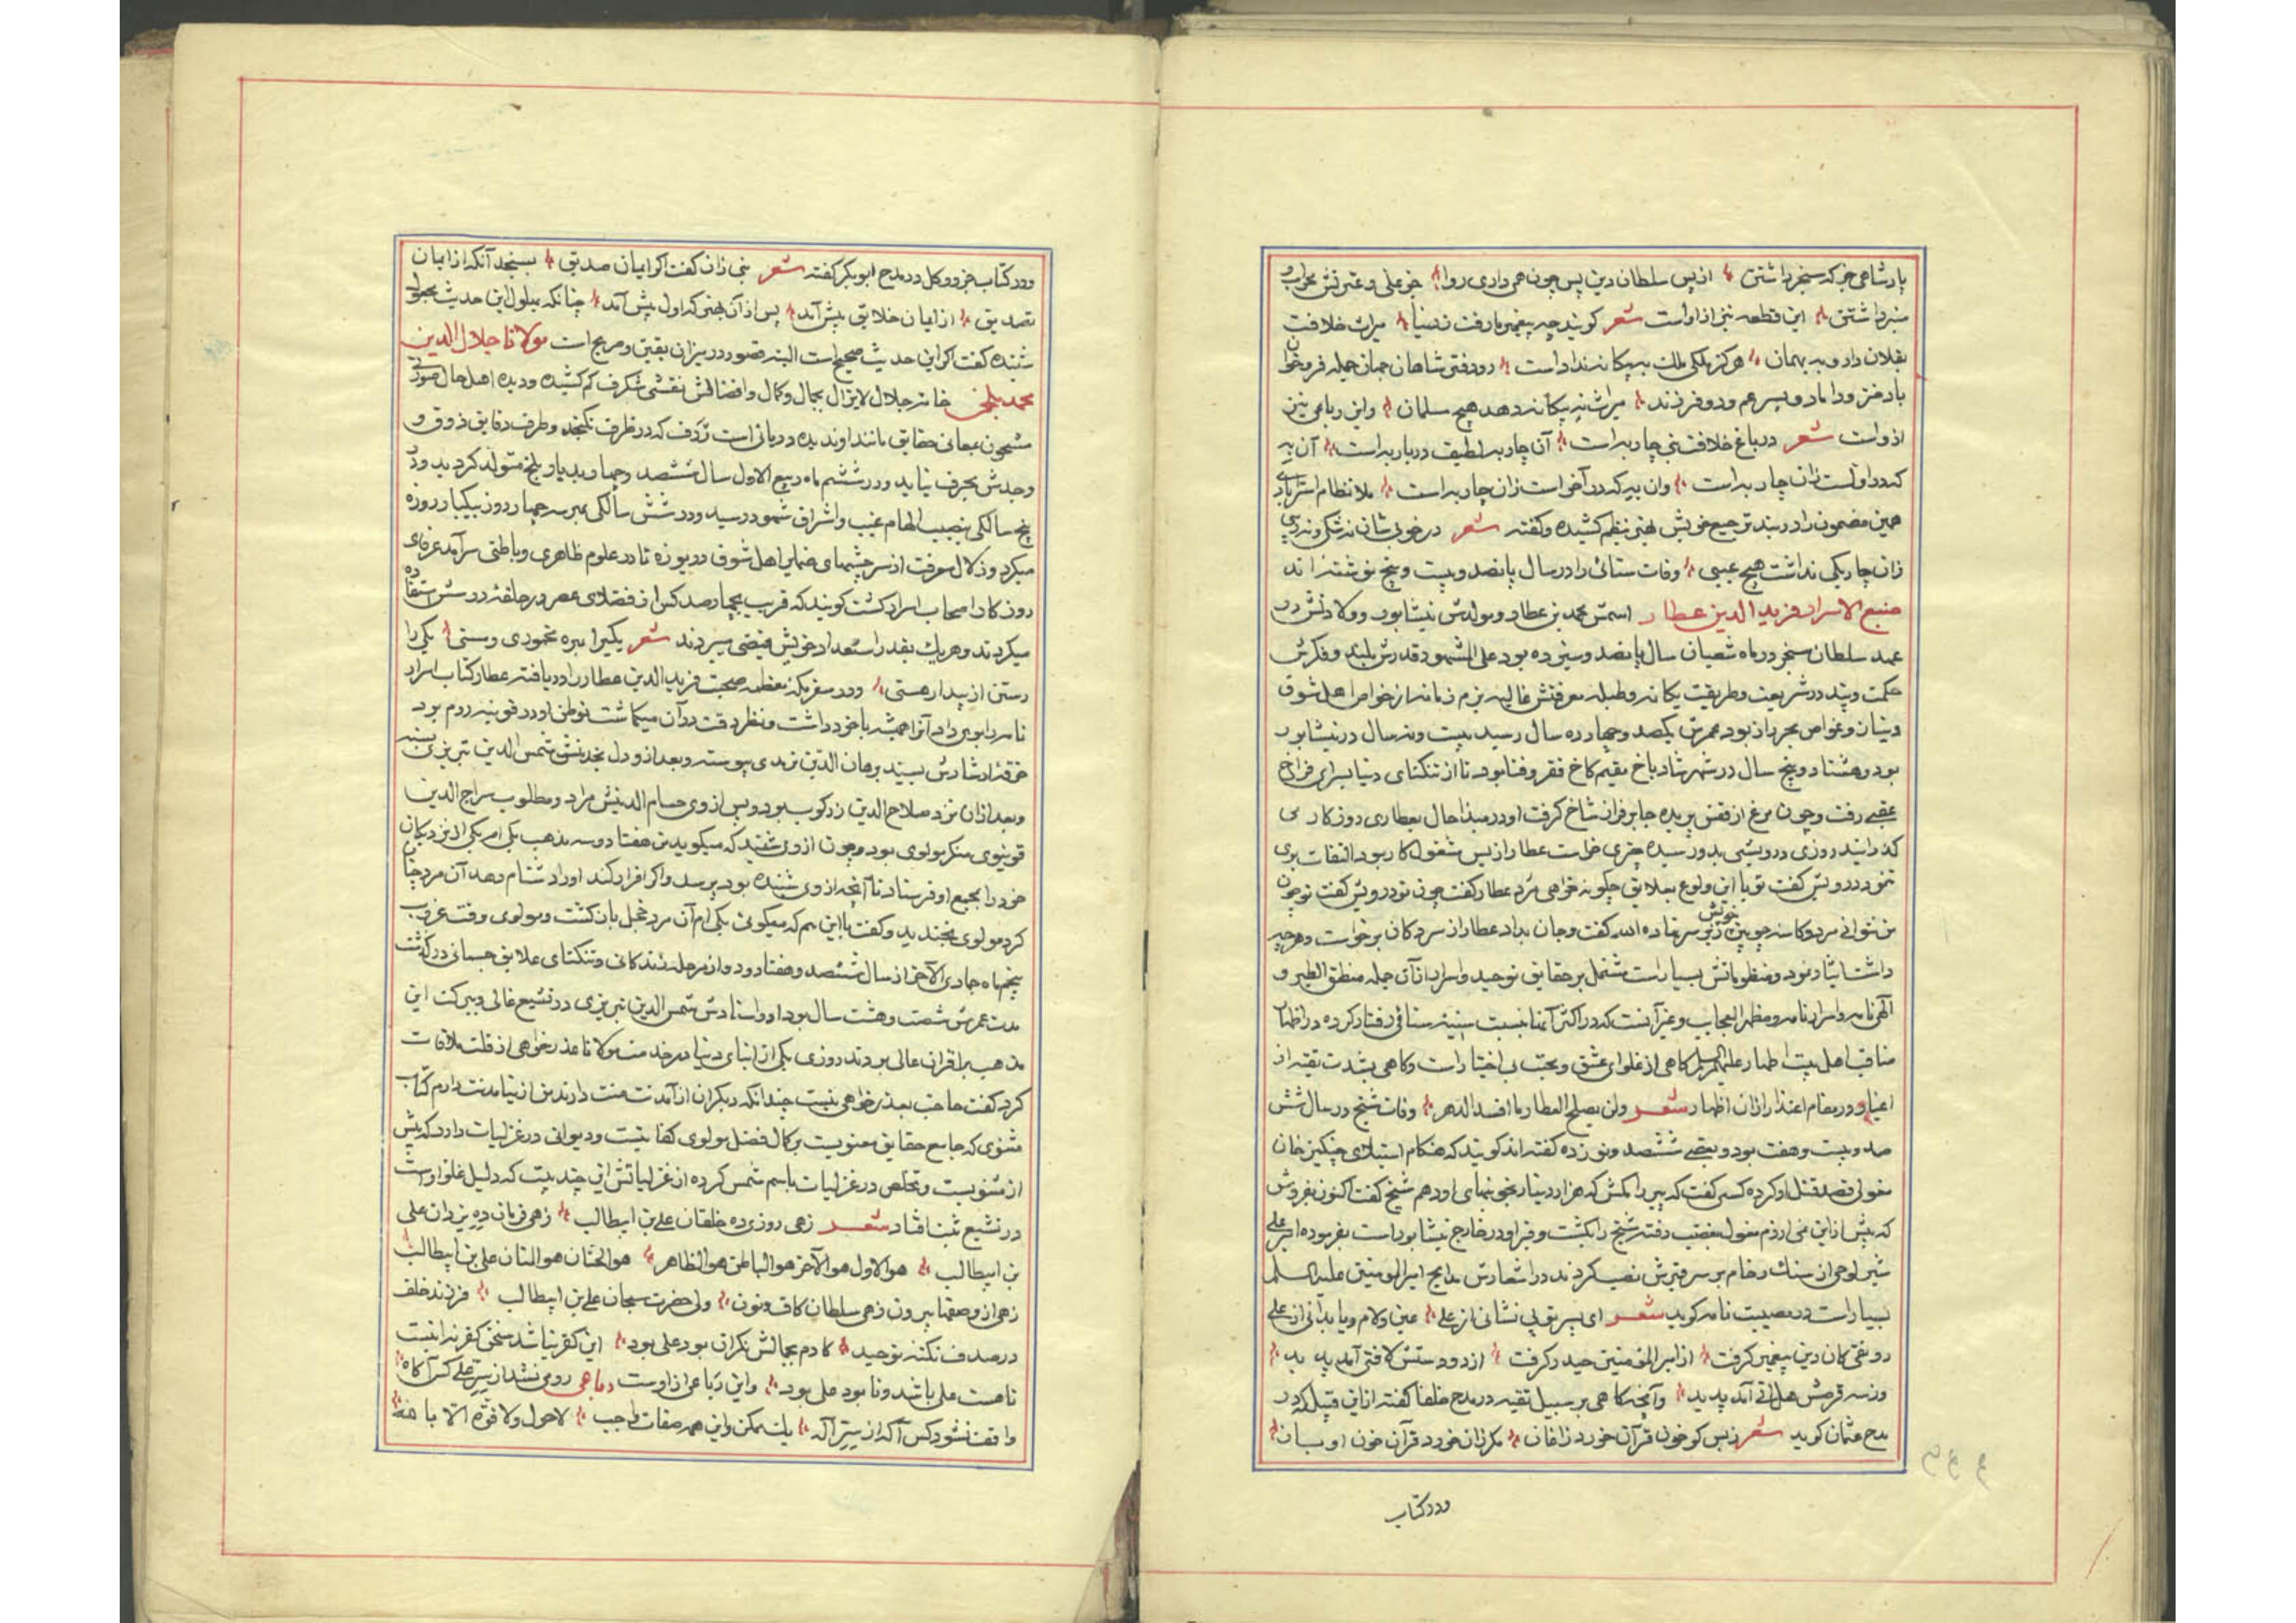 پادشاهی جز که سنجر داشتن از پس سلطان دین پس چون همی داری روا جز علی و عترتش محراب و
منبر داشتن این قطعه نیز از اوست شعر کویند چه پیغمبر ما رفت ز دنیا میراث خلافت
بفلان داد و به بهمان هرکز ملکی ملک به بیکانه نداد است رو دفتر شاهان جهان جمله فرو خوان
با دختر و داماد و پسر عم و دو فرزند میراث به بیکانه دهد هیچ مسلمان و این رباعی نیز
از واست شعر در باغ خلافت نبی چار به است آن چار به لطیف در بار به است آن به
که در اولست زان چار به است وان به که در آخر است زان چار به است ملا نظام استرابادی
همین مضمون را در بند ترجیع خویش بنظم کشیده و کفته شعر در خوبی شان نه شکی و نه ریبی
زان چار یکی نداشت هیچ عیبی وفات سنائی را در سال پانصد و بیست و پنج نوشته اند
منبع الاسرار فرید الدین عطار اسمش محمد بن عطار و مولدش نیشابور و ولادتش در
عهد سلطان سنجر در ماه شعبان سال پانصد و سیزده بود علی المشهور قدرش بلند و فکرش
حکمت و پند در شریعت و طریقت یکانه و طبله معرفتش غالیه بزم زمانه از خواص اهل شوق
و بیان و غواص بحر راز بود عمرش یکصد و چهارده سال رسید بیست و نه سال در نیشابور
بود و هشتاد و پنج سال در شهر شادباخ مقیم کاخ فقر و فنا بود تا از تنکنای دنیا بسرای فراخ
عقبی رفت و چون مرغ از قفس پریده جا بر فراز شاخ کرفت او در مبدا حال بعطاری روزکار می
کذرانید روزی درویشی بدو رسیده چیزی خواست عطار از بس مشغول کار بود التفات بوی
ننمود درویش کفت تو با این ولوع بعلایق چکونه خواهی مرد عطار کفت چون تو درویش کفت تو چون
من نتوانی مرد و کاسه چوبین زیر سر نهاده الله کفت و جان بداد عطار از سر دکان برخواست و هرچه
خویش
داشت ایثار نمود و منظوماتش بسیار است مشتمل بر حقایق توحید و اسرار از آن جمله منطق الطیر و
الهی نامه و اسرار نامه و مظهر العجایب و غیر آنست که در اکثر آنها بسبت سنیه سنائی رفتار کرده در اظهار
مناقب اهل بیت اطهار علیهم السلم کاهی از غلوای عشق و محبت بی اختیار است و کاهی بشدت تقیه از
اغیار و در مقام اعتذار از ان اظهار شعر ولن یصلح العطار ما افسد الدهر وفات شیخ در سال شش
صد و بیست و هفت بود و بعضی ششصد و نوزده کفته اند کویند که هنکام استیلای چنکیز خان
مغولی قصد قتل او کرده کسی کفت که پیر را مکش که هزار دینار بخونبهای او دهم شیخ کفت اکنون مفروش
که بیش از این می ارزم مغول بغضب رفته شیخ را بکشت و قبر او در خارج نیشابور است بفرموده امیر علی
شیر لوحی از سنک رخام بر سر قبرش نصب کردند در اشعارش مدایح امیر المومنین علیه السلم
بسیار است در مصیبت نامه کوید شعر ای پسر تو بی نشانی از علی عین و لام و یا بدانی از علی
رونقی کان دین پیغمبر کرفت از امیر المؤمنین حیدر کرفت از دو دستش لا فتی آمد پدید
وز سه قرصش هل اتی آمد پدید و آنچه کاهی بر سبیل تقیه در مدح خلفا کفته از این قبیل که در
مدح عثمان کوید شعر زبس کو خون قرآن خورد ز اغان مکر زان خورد قرآن خون او سان
ودر کتاب
ودر کتاب خز و وکل در مدح ابو بکر کفته شعر نبی زان کفت اکر ایمان صدیق بسنجد آنکه از ایمان
تصدیق از ایمان خلایق بیش آمد پس از آن بهتر که اول پیش آمد چنانکه بهلول این حدیث مجعول
شنیده کفت اکر این حدیث صحیح است البته قصور در میزان بقین و مریج است مولانا جلال الدین
محمد بلخی خامه جلال لایزال بجمال و کمال و افضالش نقشی شکرف کم کشیده و دیده اهل حال صورتی
مشحون بمعانی حقایق مانند او ندیده دریائی است ژرف که در ظرف نکنجد و طرف دقایق ذوق و
وجدش بحرف نیاید و در ششم ماه ربیع الاول سال ششصد و چهار بدیار بلخ متولد کردید و در
پنج سالکی بنصیب الهام غیب و اشراق شهود رسید و در شش سالکی بهر سه چهار روز بیکبار روزه
میکرد و زلال معرفت از سر چشمهای ضمایر اهل شوق دریوزه تا در علوم ظاهری و باطنی سرآمد عرفای
روزکار و اصحاب اسرار کشت کویند که قریب بچهارصد کس از فضلای عصر در حلقه درسش استفاده
میکردند و هریک بقدر استعداد خویش فیضی میبردند شعر یکیرا بهره مخموری و مستی یکی را
رستن از پندار هستی ودر سفر مکه معظمه صحبت فرید الدین عطار را دریافته عطار کتاب اسرار
نامه را بوی داد آنرا همیشه با خود داشت و نظر دقت در آن میکماشت توطن او در قونیه روم بود
خرقه ارشادش بسید برهان الدین ترمدی پیوسته و بعد از و دل بخدمت شمس الدین تبریزی بسته
و بعد از ان نزد صلاح الدین زرکوب بود و پس از وی حسام الدینش مراد و مطلوب سراج الدین
قونیوی منکر مولوی بود و چون از وی شنید که میکوید من هفتاد و سه مذهب یکی ام یکی از نزدیکان
خود را بمجمع او فرستاد تا آنچه از وی شنیده بود پرسد و اکر اقرار کند او را دشنام دهد آن مرد چنان
کرد مولوی بخندید و کفت با این هم که میکوئی یکی ام آن مرد خجل باز کشت و مولوی وقت غروب
پنجم ماه جمادی الآخر از سال ششصد و هفتاد و دو از مرحله زندکانی و تنکنای علایق جسمانی درکذشت
مدت عمرش شصت و هشت سال بود او و استادش شمس الدین تبریزی در تشیع غالی و ببرکت این
مذهب بر اقران عالی بودند روزی یکی از ابنای دنیا در خدمت مولانا عذر خواهی از قلت ملاقات
کرد کفت حاجت بعذر خواهی نیست چندانکه دیکران از آمدنت منت دارند من از نیامدنت دارم کتاب
مثنوی که جامع حقایق معنویست بر کمال فضل مولوی کفایتیست و دیوانی در غزلیات دارد که بیش
از مثنویست و تخلص در غزلیات باسم شمس کرده از غزلیاتش این چند بیت که دلیل غلو اوست
در تشیع ثبت افتاد شعر زهی روزی ده خلقان علی بن ابیطالب زهی فرمان ده یزدان علی
بن ابیطالب هو الاول هو الآخر هو الباطن هو الظاهر هو الحنان هو المنان علی بن ابیطالب
زهی از وصفها بیرون زهی سلطان کاف و نون ولی حضرت سبحان علی بن ابیطالب فرزند خلف
در صدف نکته توحید کادم بجمالش نکران بود علی بود این کفر نباشد سخن کفر نه اینست
تا هست علی باشد و تا بود علی بود و این رباعی از اوست رباعی رومی نشد از سر علی کس آکاه
واقف نشود کس آکه از سر اله یک ممکن و این همه صفات واجب لا حول ولا قوة الا بالله